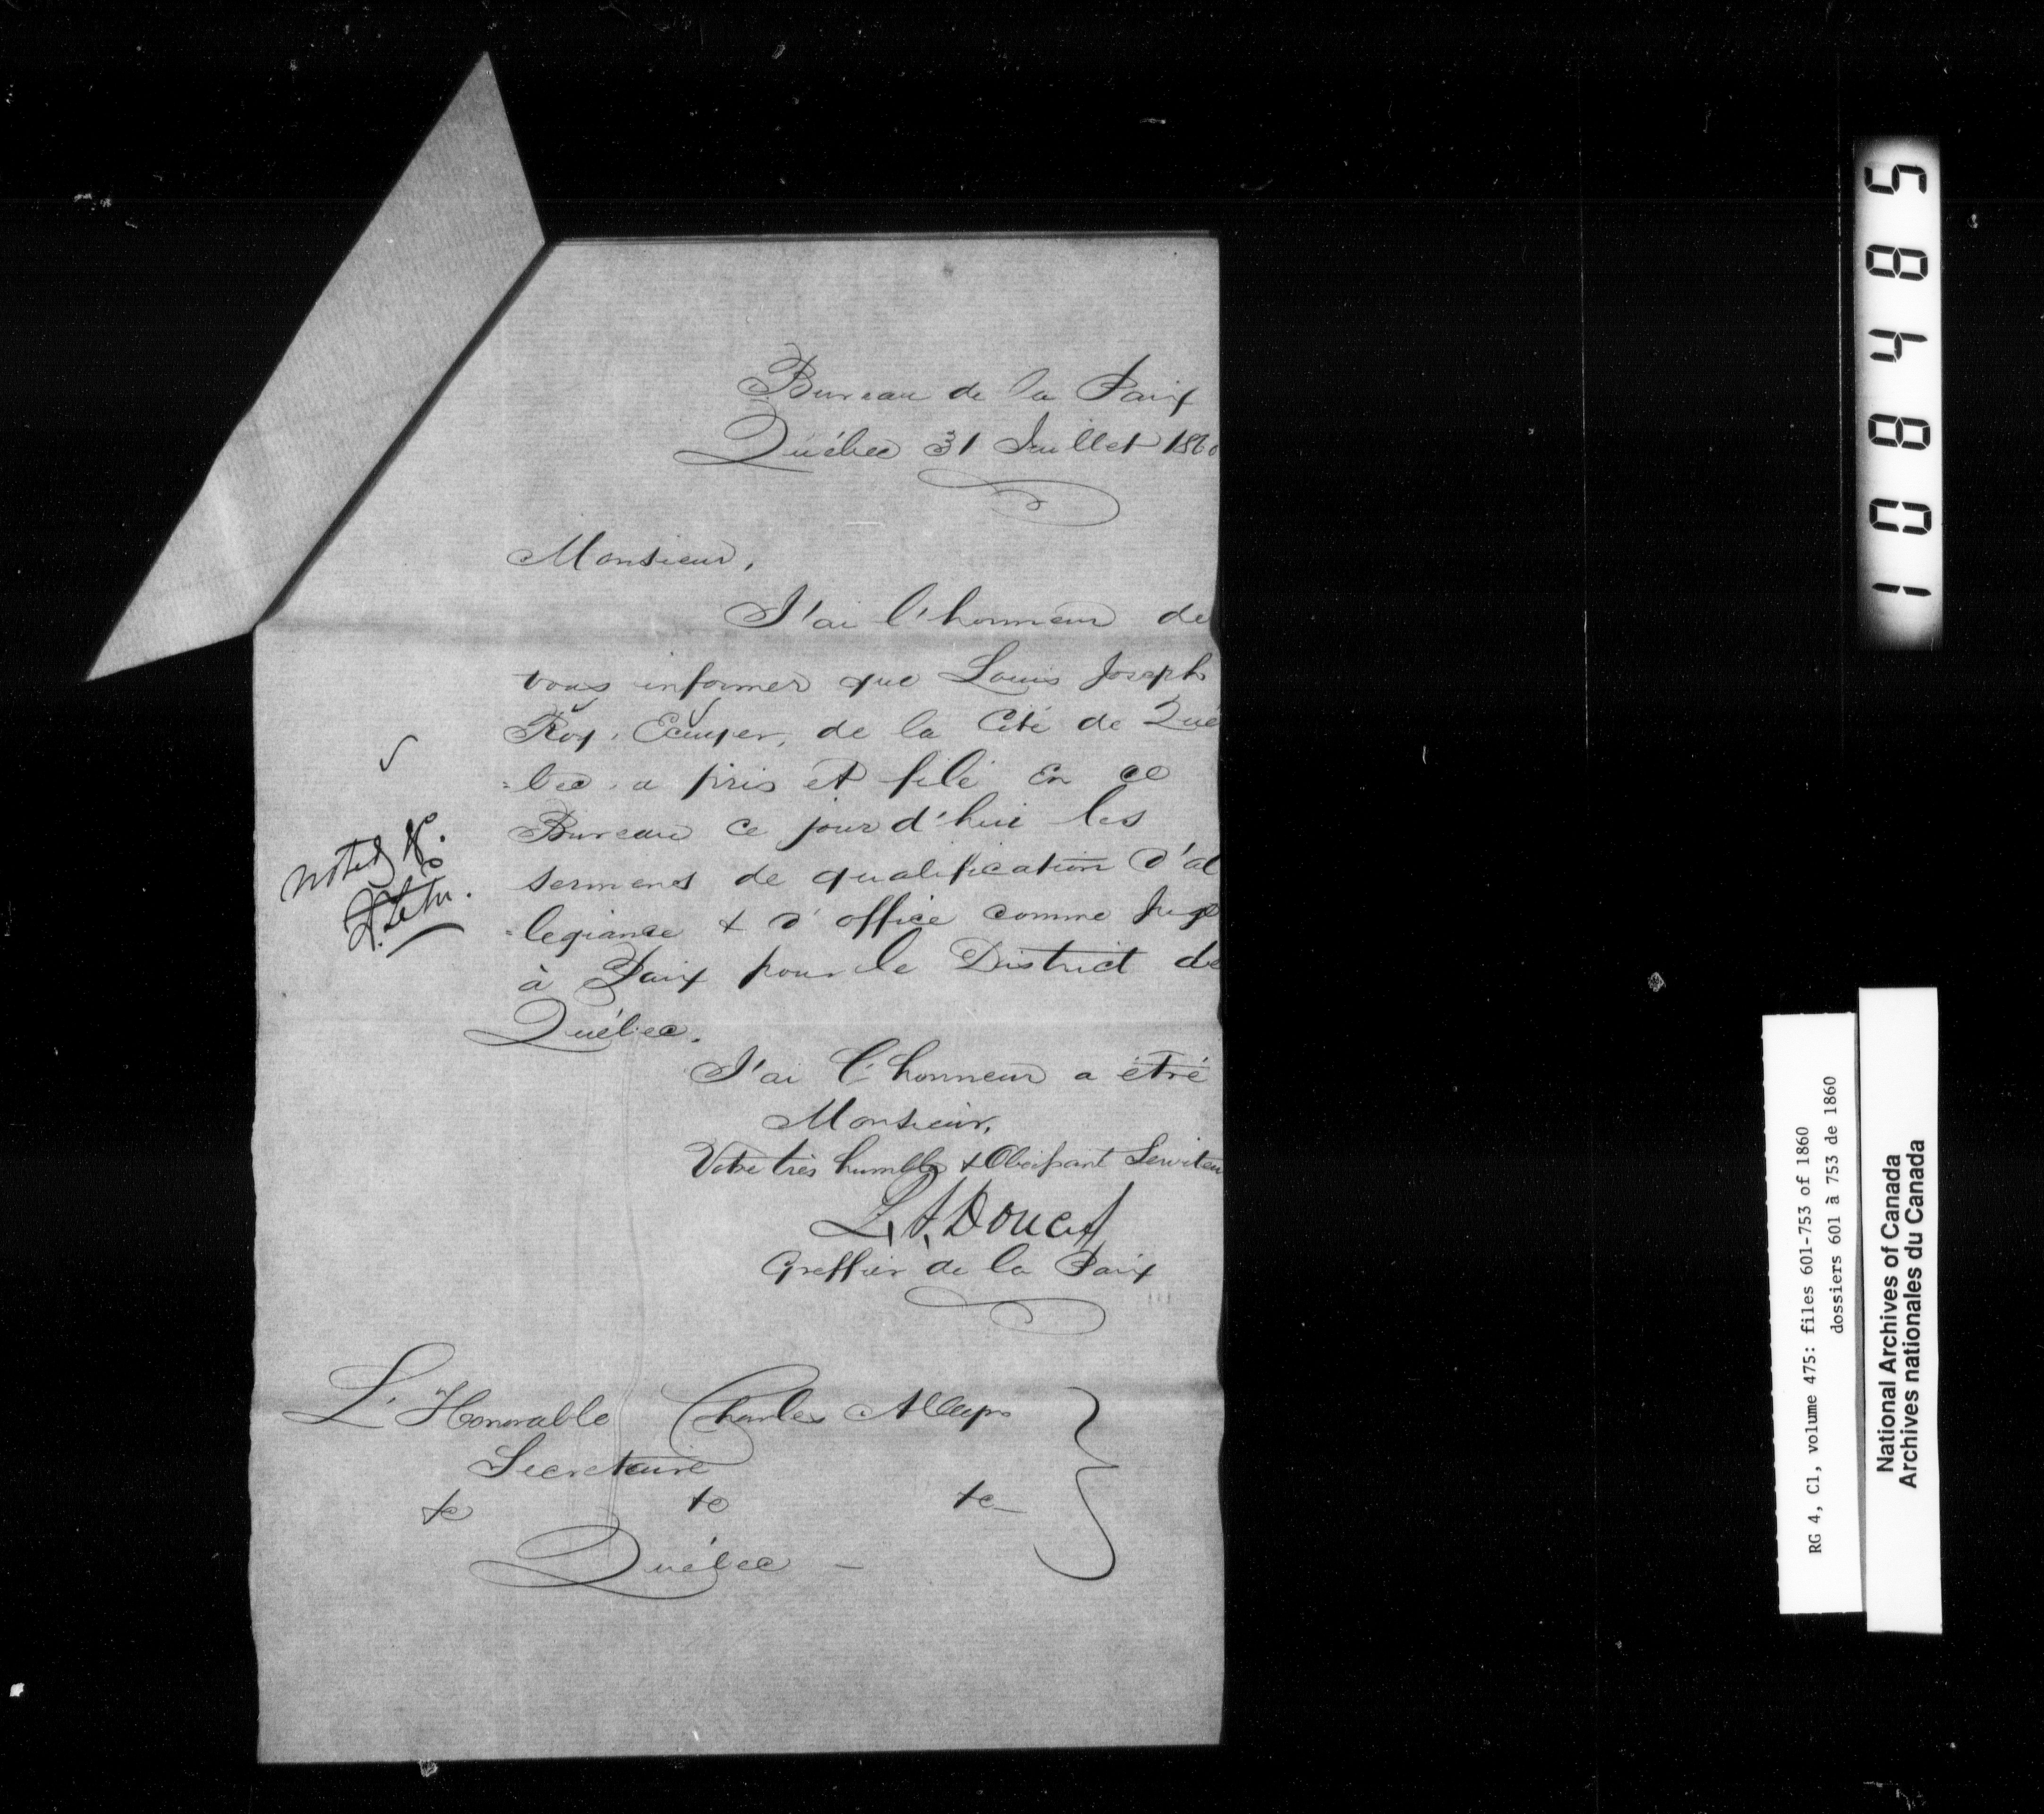 Bureau de la Paix
Québec 31 Juillet 1860
Monsieur,
J'ai l'honneur de
vous informer que Louis Joseph
Roy, Ecuyer, de la Cité de Qué
=bec a pris et filé en ce
Bureau ce jourd'hui les
serments de qualification d'al
=legiance & d'office comme Juge
à Paix pour le District de
Québec.
J'ai l'honneur a être
Monsieur,
Votre très humble & Obeissant Serviteur
Doucet
Greffier de la Paix
noted
L'Honorable Charles Alleyn
Secretaire
&c &c &c
Québec
108485
RG 4, C1, volume 475: files 601-753 of 1860
dossiers 601 à 753 de 1860
National Archives of Canada
Archives nationales du Canada